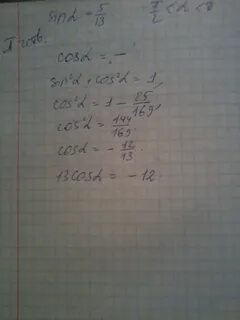 sinα = 5/13 π/2 < α < π
II четв.
cosα = -
sin²α + cos²α = 1
cos²α = 1 - 25/169
cos²α = 144/169
cosα = - 12/13
13cosα = - 12